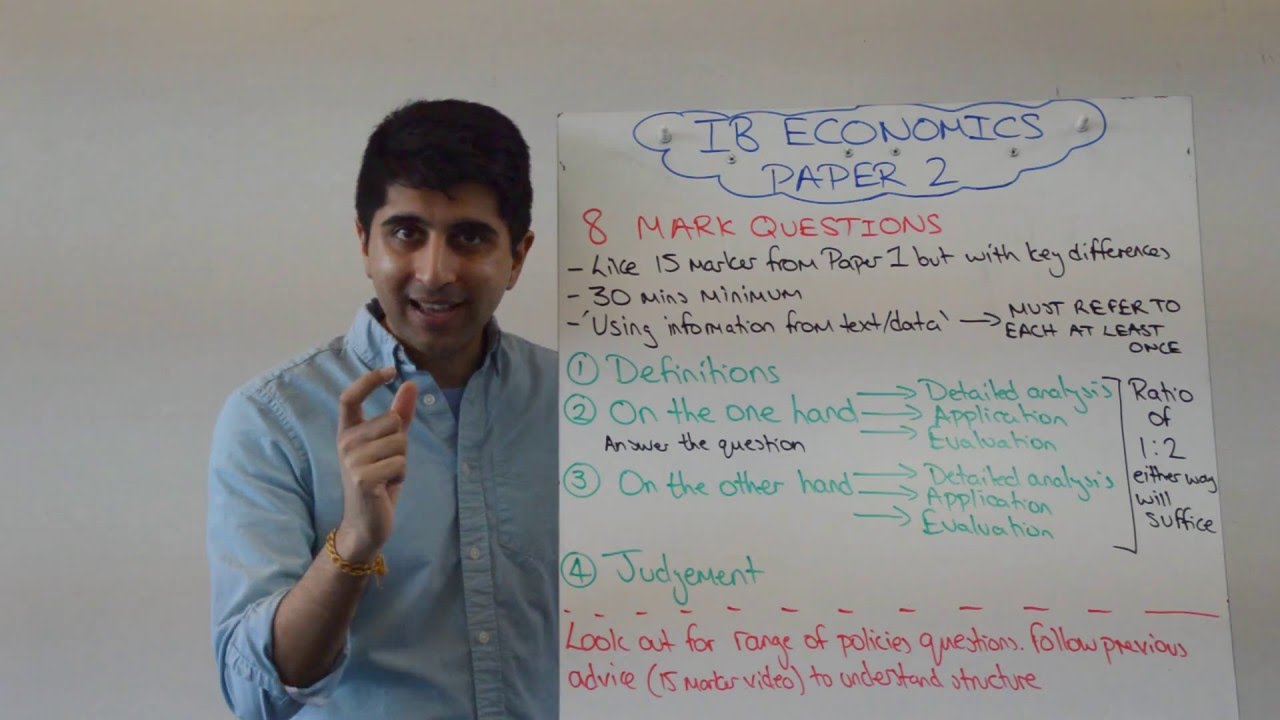 IB ECONOMICS
PAPER 2
8 MARK QUESTIONS
- Like 15 marker from Paper 1 but with key differences
- 30 mins minimum
- 'Using information from text/data' → MUST REFER TO
EACH AT LEAST
ONCE
① Definitions
② On the one hand → Detailed analysis
→ Application
→ Evaluation
Answer the question
③ On the other hand → Detailed analysis
→ Application
→ Evaluation
Ratio
of
1:2
either way
will
suffice
④ Judgement
Look out for range of policies questions. Follow previous
advice (15 marker video) to understand structure